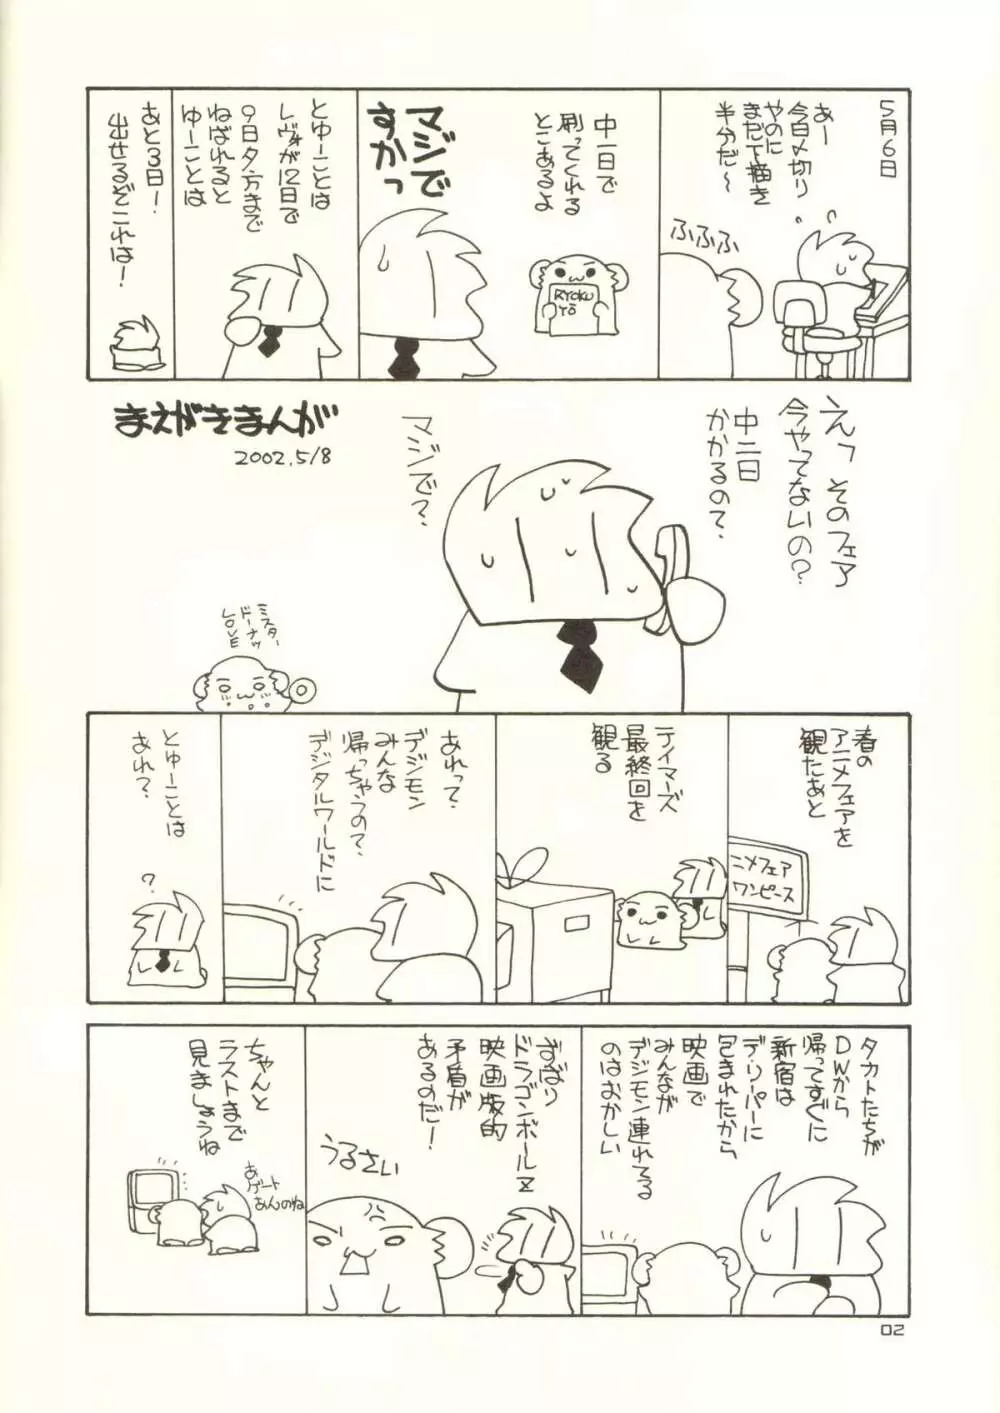 5月6日
あー
今日〆切り
やのに
まだ下描き
半分だ〜
ふふふ
中一日で
刷ってくれる
とこあるよ
RYOKU
YŌ
マジで
すかっ
とゆーことは
レヴォが12日で
9日夕方まで
ねばれると
ゆーことは
あと3日!
出せるぞこれは!
まえがきまんが
2002.5/8
えっ そのフェア
今やってないの?
中二日
かかるの?
マジで?
ミスター
ドーナッツ
LOVE
春の
アニメフェアを
観たあと
ニメフェア
ワンピース
テイマーズ
最終回を
観る
あれって?
デジモン
みんな
帰っちゃうの?
デジタルワールドに
とゆーことは
あれ?
タカトたちが
DWから
帰ってすぐに
新宿は
デ・リーパーに
包まれたから
映画で
みんなが
デジモン連れてる
のはおかしい
ずばり
ドラゴンボールZ
映画版的
矛盾が
あるのだ!
うるさい
ちゃんと
ラストまで
見ましょうね
あ
ゲート
あんのね
02